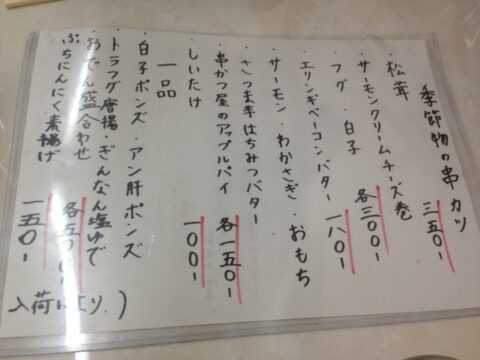 季節物の串カツ
・松茸 三五〇ー
・サーモンクリームチーズ巻
・フグ・白子 各三〇〇ー
・エリンギベーコンバター 一八〇ー
・サーモン・わかさぎ・おもち
・さつま芋はちみつバター
・串かつ屋のアップルパイ 各一五〇ー
・しいたけ 一〇〇ー
一品
・白子ポンズ・アン肝ポンズ
・トラフグ唐揚・ぎんなん塩ゆで
・おでん盛合わせ 各五〇〇ー
・ぷちにんにく素揚げ 一五〇ー
入荷により.)